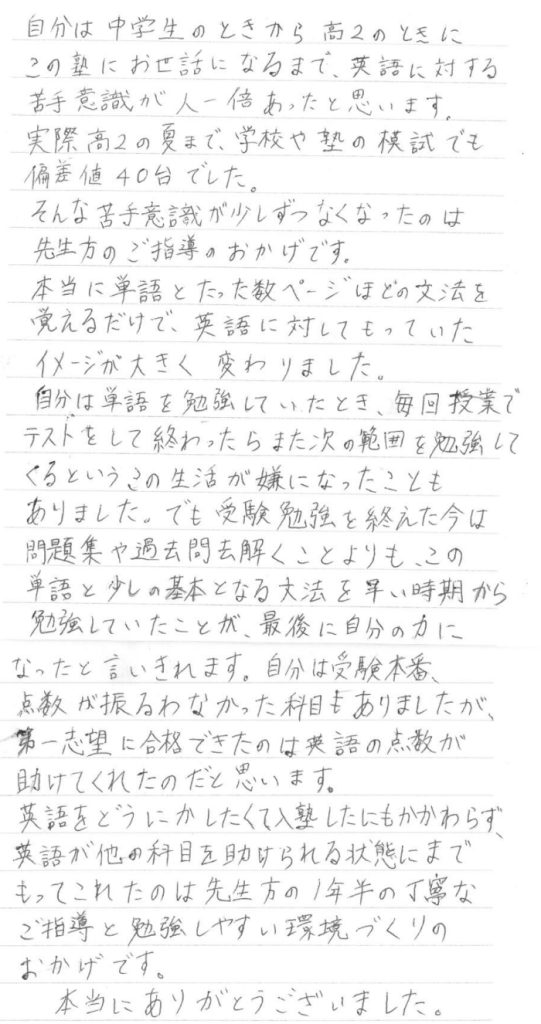 自分は中学生のときから高2のときに
この塾にお世話になるまで、英語に対する
苦手意識が人一倍あったと思います。
実際高2の夏まで、学校や塾の模試でも
偏差値40台でした。
そんな苦手意識が少しずつなくなったのは
先生方のご指導のおかげです。
本当に単語とたった数ページほどの文法を
覚えるだけで、英語に対してもっていた
イメージが大きく変わりました。
自分は単語を勉強していたとき、毎回授業で
テストをして終わったらまた次の範囲を勉強して
くるというこの生活が嫌になったことも
ありました。でも受験勉強を終えた今は
問題集や過去問去解くことよりも、この
単語と少しの基本となる文法を早い時期から
勉強していたことが、最後に自分の力に
なったと言いきれます。自分は受験本番、
点数が振るわなかった科目もありましたが、
第一志望に合格できたのは英語の点数が
助けてくれたのだと思います。
英語をどうにかしたくて入塾したにもかかわらず、
英語が他の科目を助けられる状態にまで
もってこれたのは先生方の1年半の丁寧な
ご指導と勉強しやすい環境づくりの
おかげです。
本当にありがとうございました。